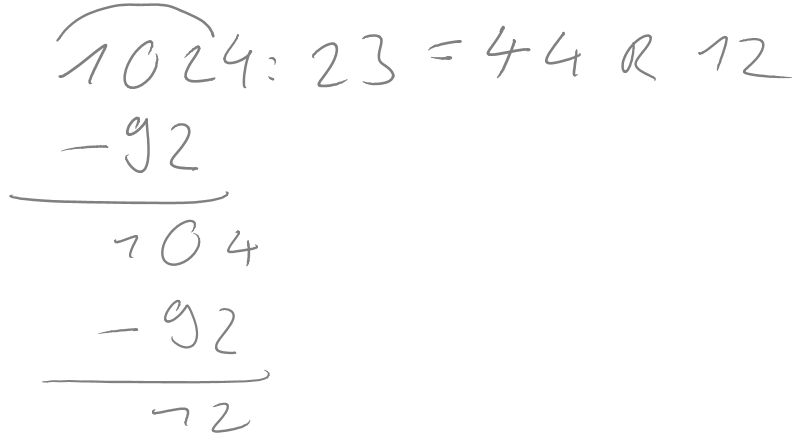 1024 : 23 = 44 R 12
- 92
104
- 92
12